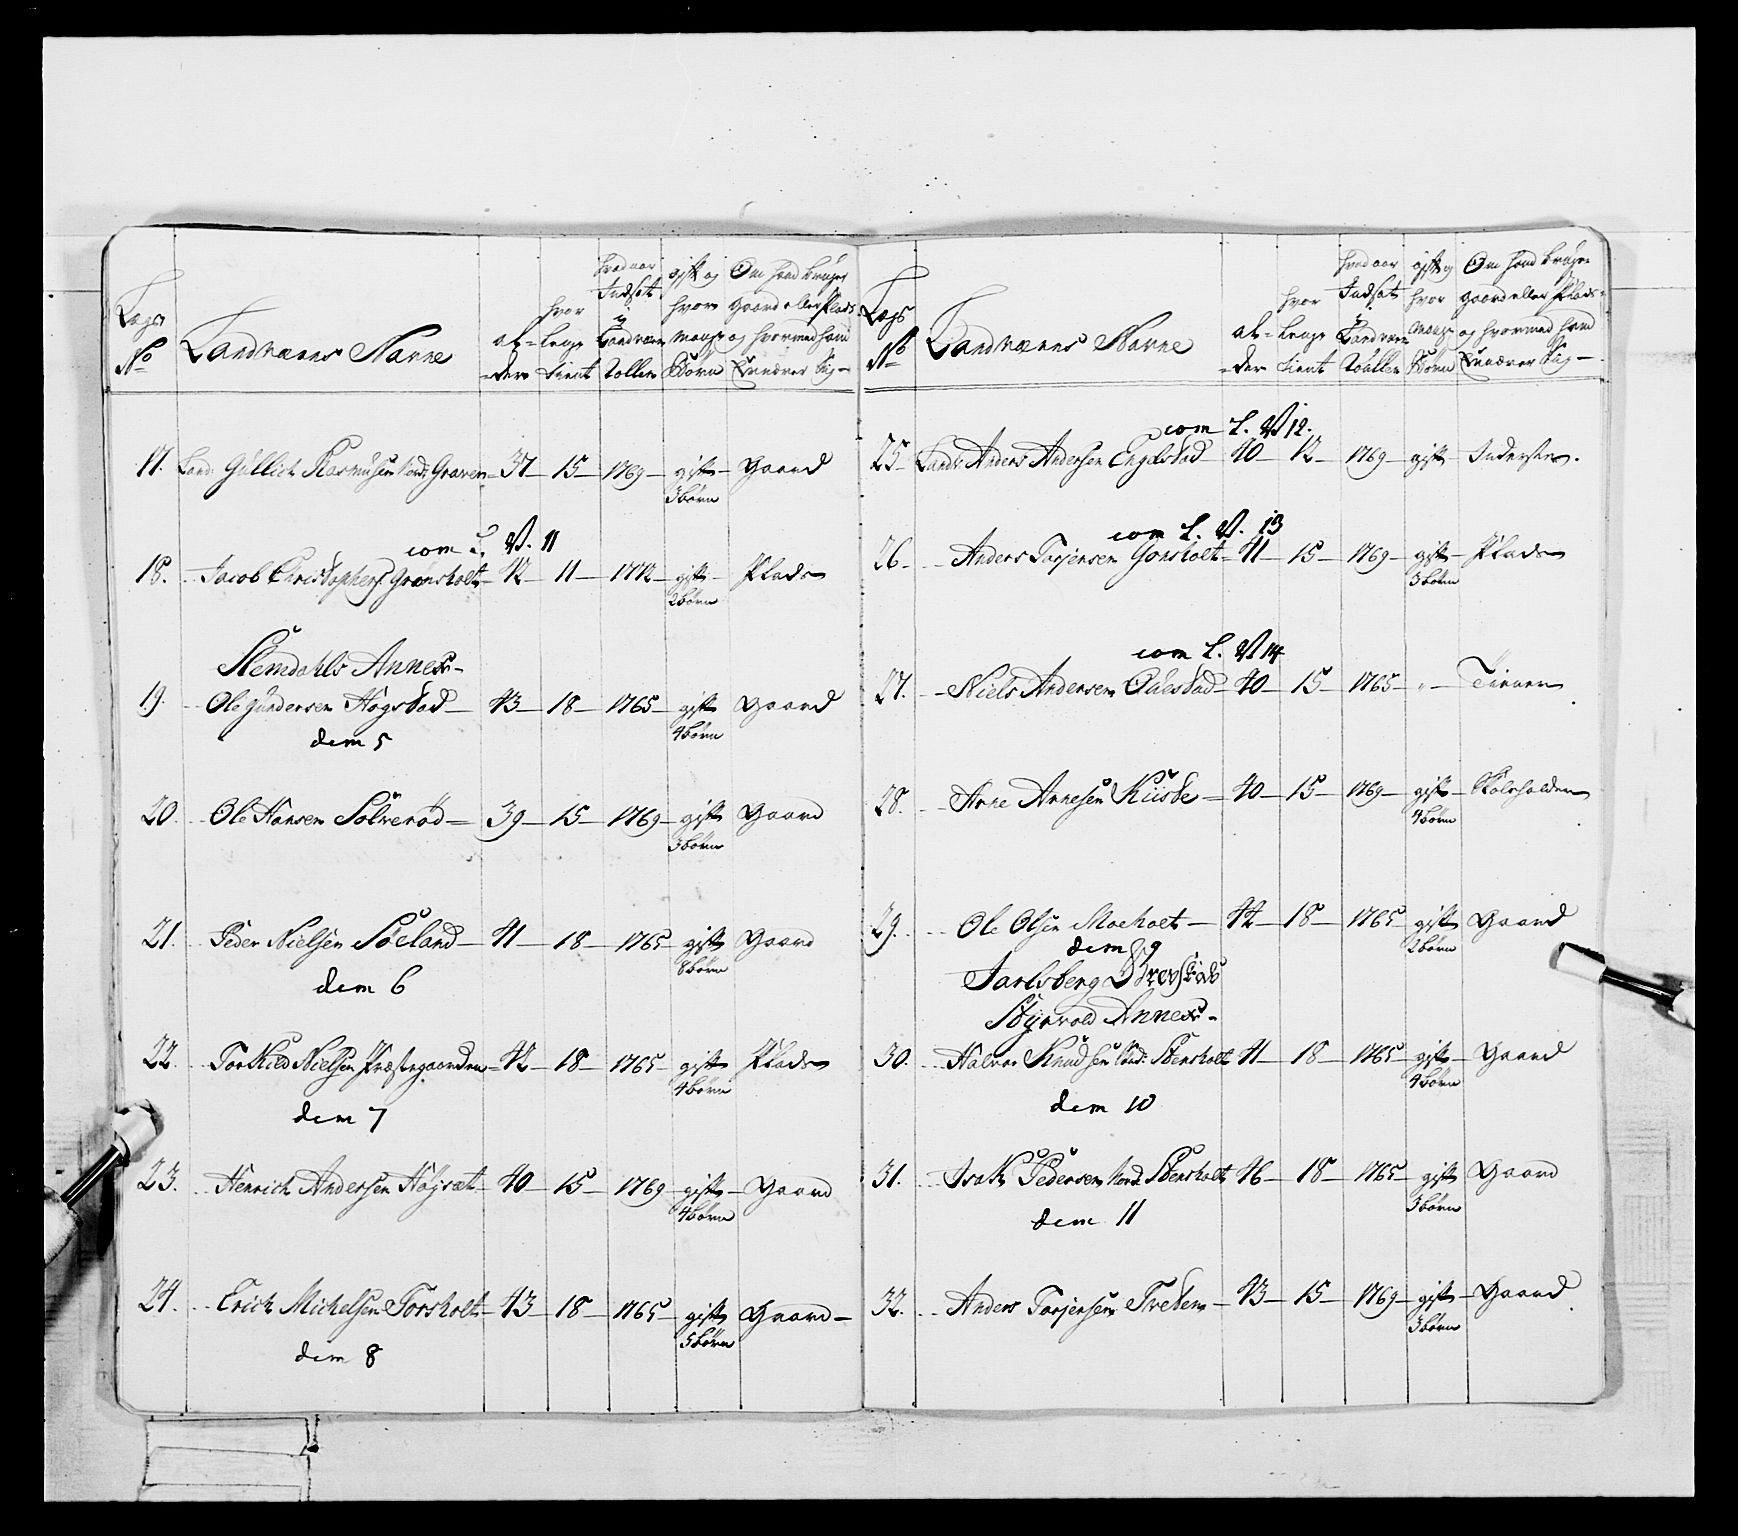 Lægs No
Landværns Navne
al-der
hvor lenge tient
hvad aar Indsat i Landværn Rollen
gift og hvor mange Børn
Om hand bruger gaard eller Plads og hvormed hand Ernærer Sig
17. Land: Gullich Rasmusen Nord: Graven 37 15 1769 gift 3 børn Gaard
com L. N. 11
18. Jacob Christophers: Grønsholt 42 11 1772 gift 2 børn Plads
Slemdahls Annex
19. Ole Gundersen Hogstad 43 18 1765 gift 4 børn Gaard
dem 5
20. Ole Hansen Sølverød 39 15 1769 gift 3 børn Gaard
21. Peder Nielsen Søeland 41 18 1765 gift 8 børn Gaard
dem 6
22. Torkild Nielsen Præstegaarden 42 18 1765 gift 4 børn Plads
dem 7
23. Henrich Andersen Højsæt 40 15 1769 gift 4 børn Gaard
24. Erich Michelsen Torsholt 43 18 1765 gift 5 børn Gaard
dem 8
Lægs No
Landværns Navne
al-der
hvor lenge tient
hvad aar Indsat i Landværn Rullen
gift og hvor mange Børn
Om hand bruger gaard eller Plads og hvormed hand Ernærer Sig
com L. N 12.
25. Landv: Anders Andersen Engelstad 40 12 1769 gift Inderste
com L. N. 13
26. Anders Torjersen Gonsholt 41 15 1769 gift 3 børn Plads
com L. N 14
27. Niels Andersen Oulestad 40 15 1765 " Tienner
28. Arne Arnesen Kiiste 40 15 1769 gift 4 børn Skoleholder
29. Ole Olsen Moeholt 42 18 1765 gift 2 børn Gaard
dem 9
Jarlsberg Grevskab
Styrvold Annex
30. Halvor Knudsen Nord: Stensholt 41 18 1765 gift 4 børn Gaard
dem 10
31. Isak Pedersen Nord: Stensholt 46 18 1765 gift 3 børn Gaard
dem 11
32. Anders Torjersen Treden 43 15 1769 gift 3 børn Gaard